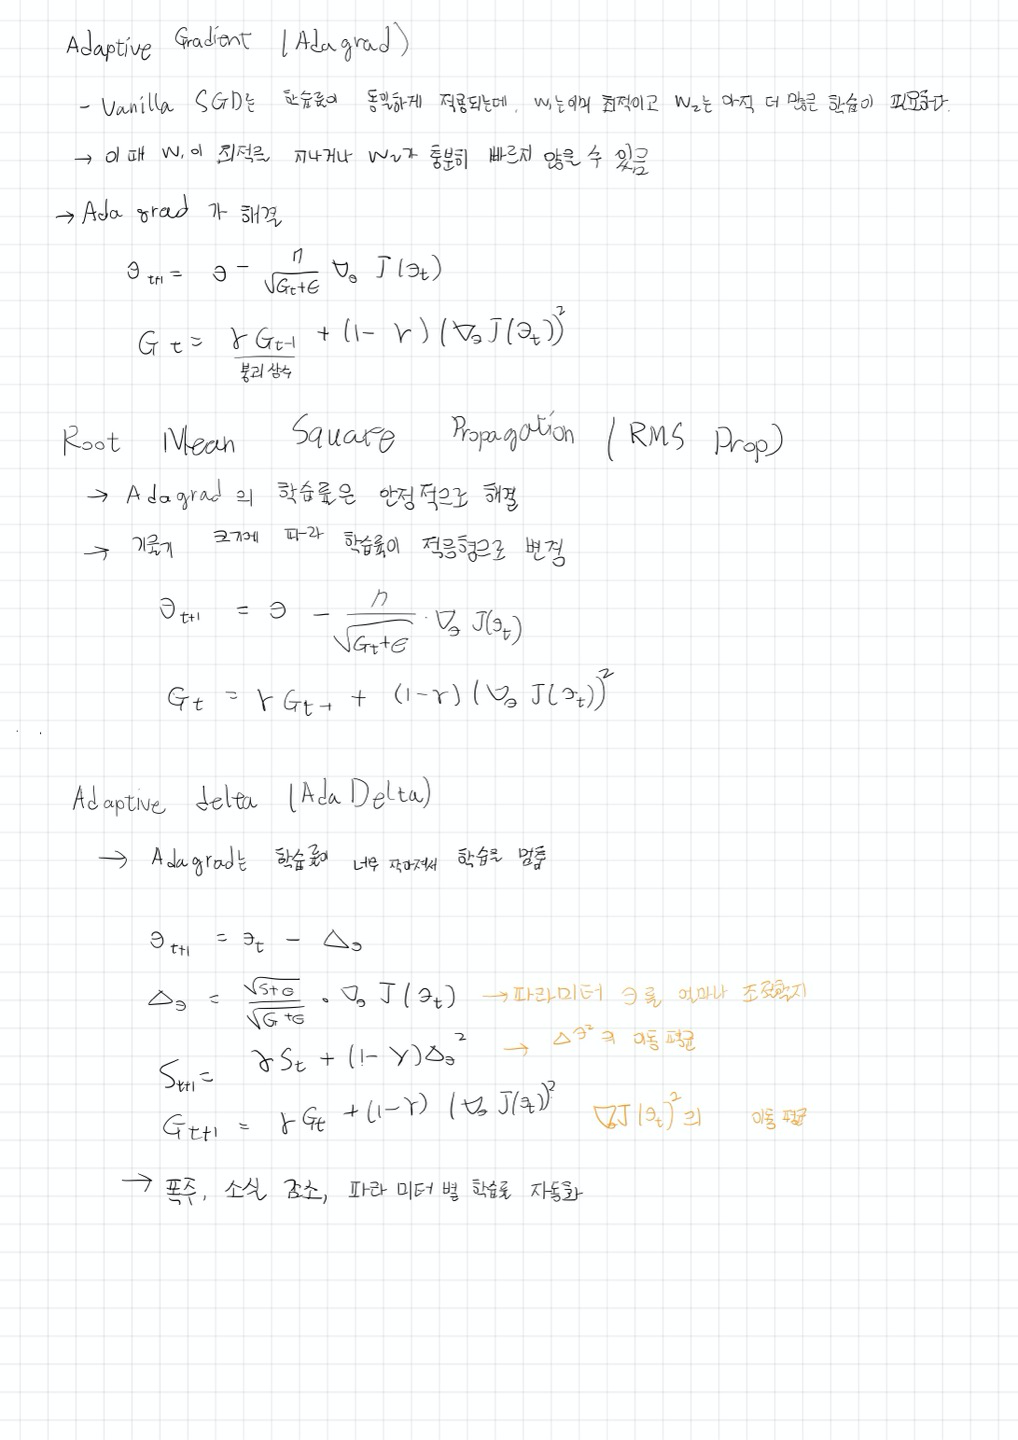 Adaptive Gradient (Adagrad)
- Vanilla SGD는 학습률이 동일하게 적용되는데, W₁는 이미 최적이고 W₂는 아직 더 많은 학습이 필요하다.
→ 이 때 W₁이 최적을 지나거나 W₂가 충분히 빠르지 않을 수 있음
→ Ada grad 가 해결
θ_{t+1} = θ - η/√(G_t+ϵ) ∇_θ J(θ_t)
G_t = γ G_{t-1} + (1-γ)(∇_θ J(θ_t))²
붕괴 상수
Root Mean Square Propagation (RMS Prop)
→ Adagrad의 학습률은 안정적으로 해결
→ 기울기 크기에 따라 학습률이 적응형으로 변경
θ_{t+1} = θ - η/√(G_t+ϵ) · ∇_θ J(θ_t)
G_t = γ G_{t-1} + (1-γ)(∇_θ J(θ_t))²
Adaptive delta (Ada Delta)
→ Adagrad는 학습률이 너무 작아져서 학습을 멈춤
θ_{t+1} = θ_t - Δ_θ
Δ_θ = √(S+ϵ)/√(G+ϵ) · ∇_θ J(θ_t) → 파라미터 θ를 얼마나 조정할지
S_{t+1} = γ S_t + (1-γ)Δ_θ² → Δθ²의 이동 평균
G_{t+1} = γ G_t + (1-γ) (∇_θ J(θ_t))² ∇J(θ_t)²의 이동 평균
→ 폭주, 소실 감소, 파라미터 별 학습률 자동화